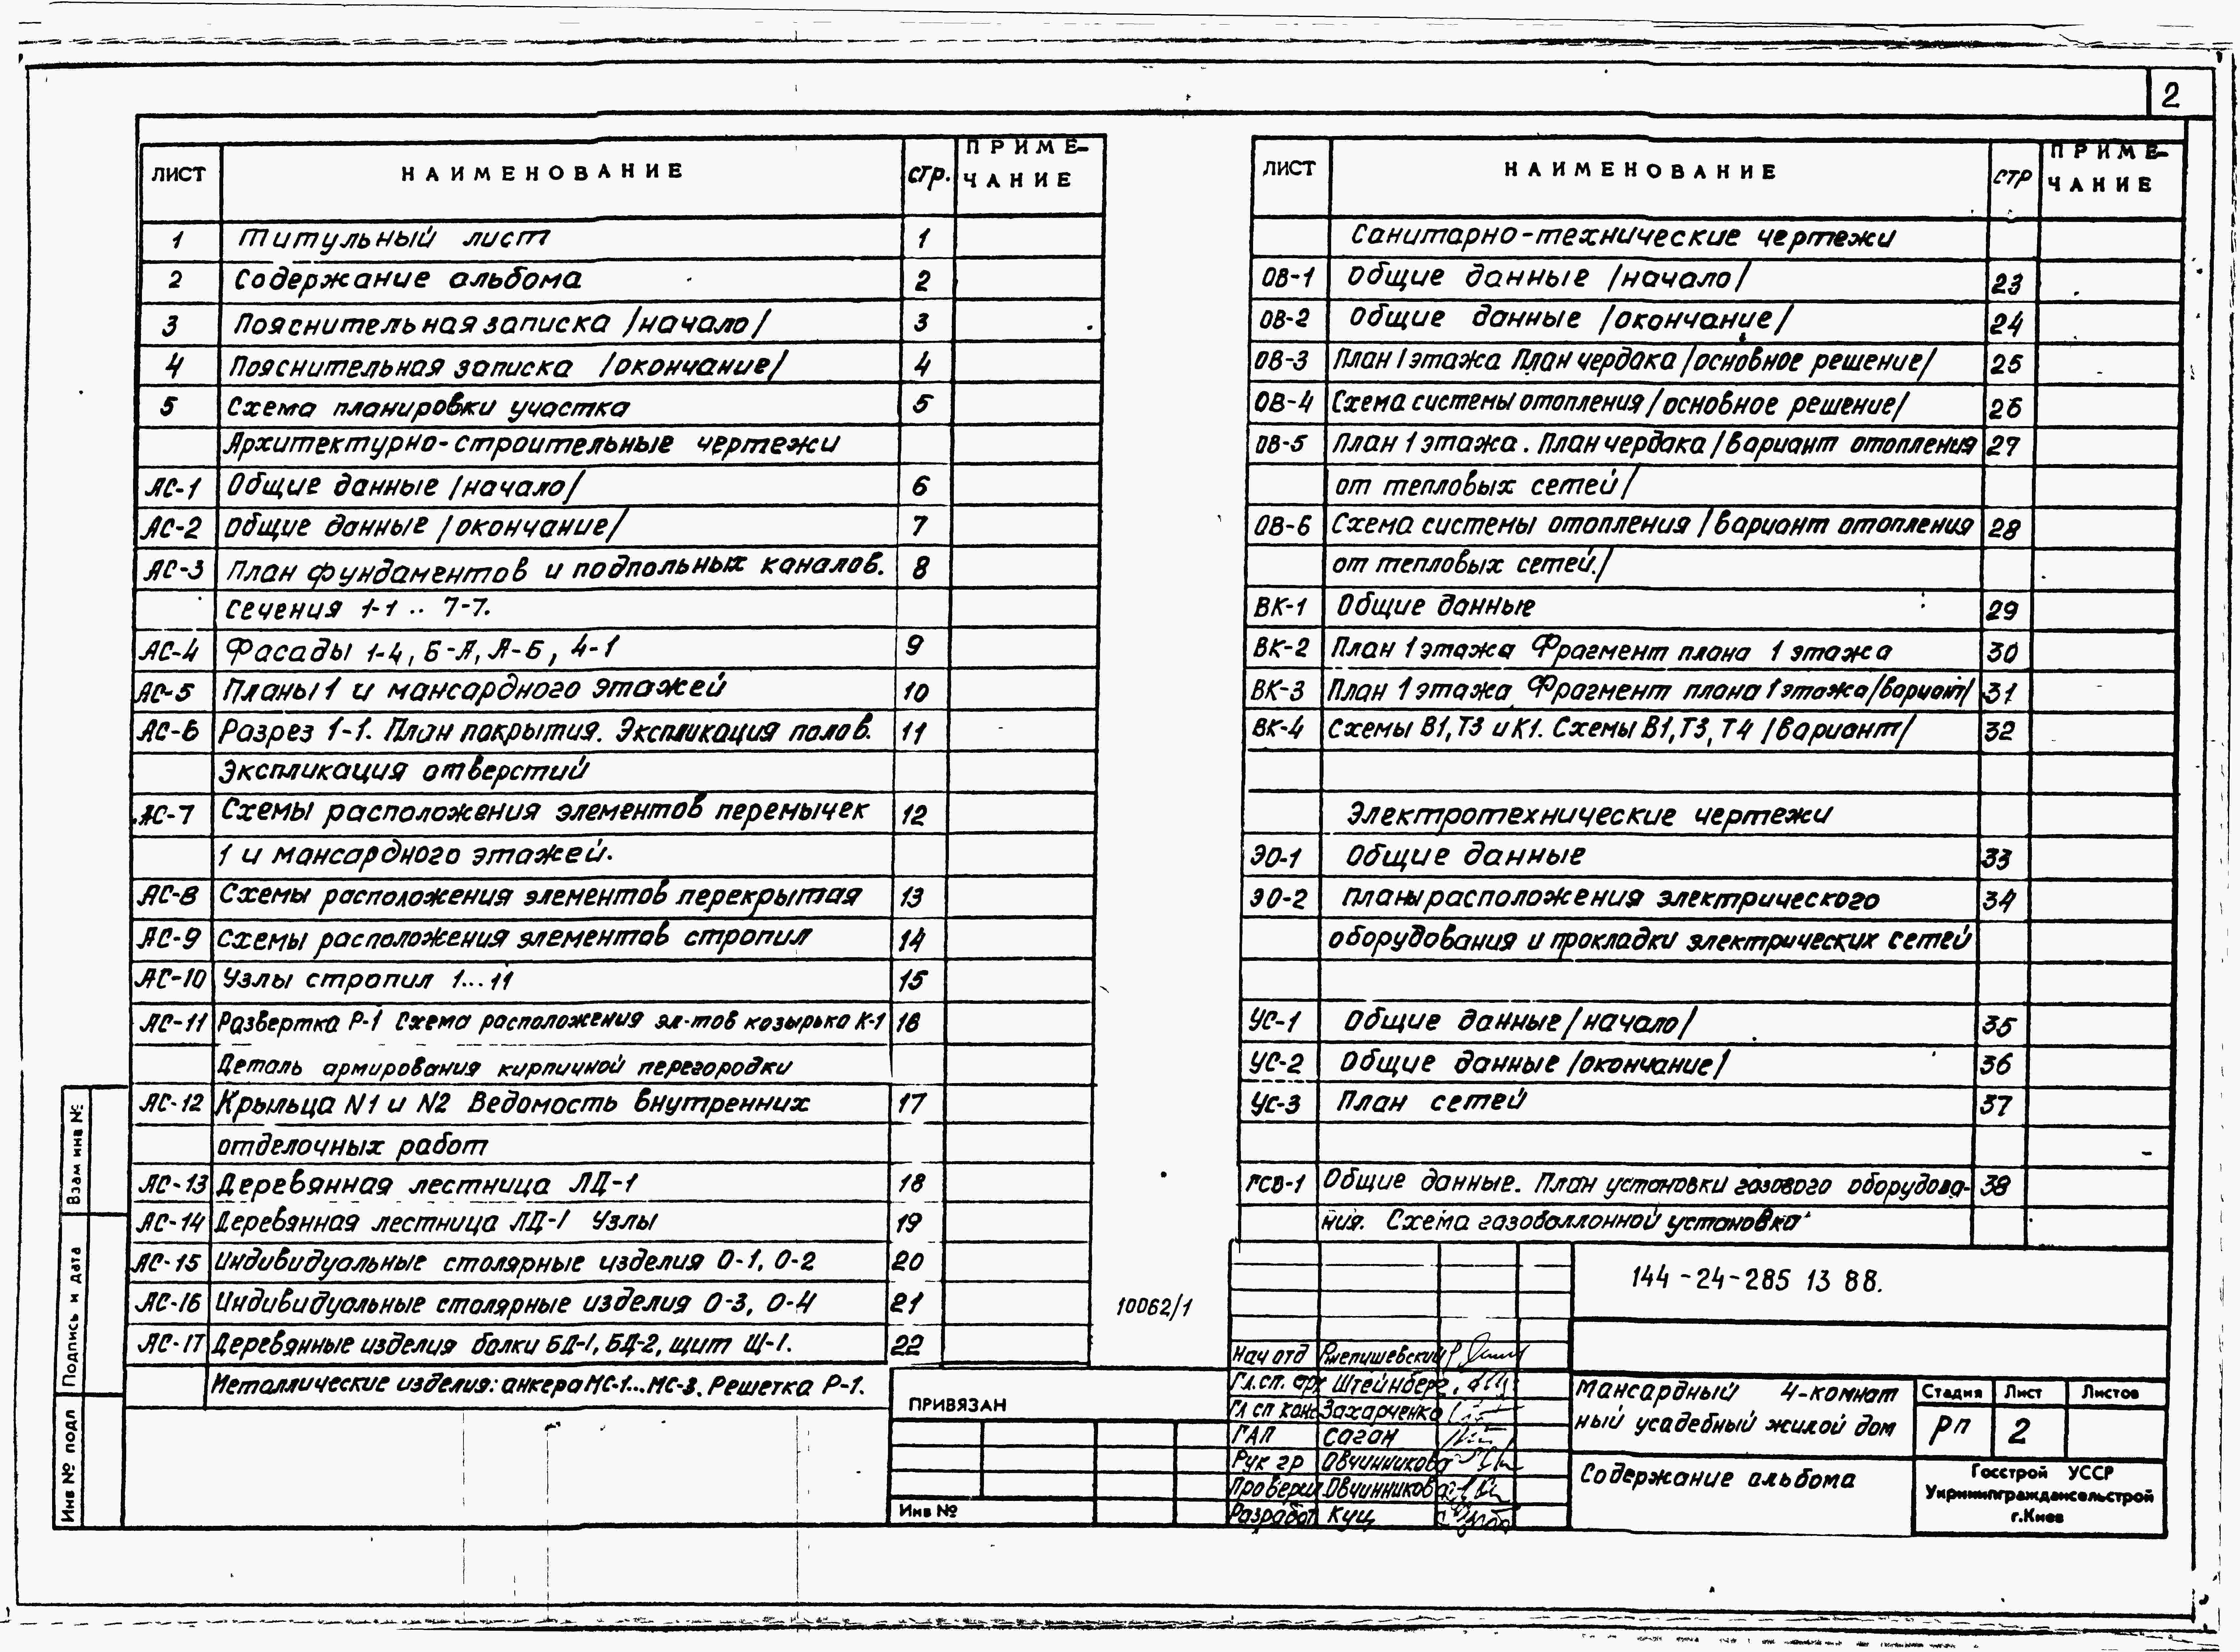 2
ЛИСТ НАИМЕНОВАНИЕ СТР. ПРИМЕ-
ЧАНИЕ
1 Титульный лист 1
2 Содержание альбома 2
3 Пояснительная записка /начало/ 3
4 Пояснительная записка /окончание/ 4
5 Схема планировки участка 5
Архитектурно-строительные чертежи
АС-1 Общие данные /начало/ 6
АС-2 Общие данные /окончание/ 7
АС-3 План фундаментов и подпольных каналов. 8
Сечения 1-1 .. 7-7.
АС-4 Фасады 1-4, Б-А, А-Б, 4-1 9
АС-5 Планы 1 и мансардного этажей 10
АС-6 Разрез 1-1. План покрытия. Экспликация полов. 11
Экспликация отверстий
АС-7 Схемы расположения элементов перемычек 12
1 и мансардного этажей.
АС-8 Схемы расположения элементов перекрытая 13
АС-9 Схемы расположения элементов стропил 14
АС-10 Узлы стропил 1...11 15
АС-11 Развертка Р-1 Схема расположения эл-тов козырька К-1 16
Деталь армирования кирпичной перегородки
АС-12 Крыльца N1 и N2 Ведомость внутренних 17
отделочных работ
АС-13 Деревянная лестница ЛД-1 18
АС-14 Деревянная лестница ЛД-1 Узлы 19
АС-15 Индивидуальные столярные изделия О-1, О-2 20
АС-16 Индивидуальные столярные изделия О-3, О-4 21
АС-17 Деревянные изделия балки БД-1, БД-2, щит Щ-1. 22
Металлические изделия: анкера МС-1...МС-3. Решетка Р-1.
ЛИСТ НАИМЕНОВАНИЕ СТР ПРИМЕ-
ЧАНИЕ
Санитарно-технические чертежи
ОВ-1 Общие данные /начало/ 23
ОВ-2 Общие данные /окончание/ 24
ОВ-3 План 1 этажа План чердака /основное решение/ 25
ОВ-4 Схема системы отопления /основное решение/ 26
ОВ-5 План 1 этажа. План чердака /вариант отопления 27
от тепловых сетей/
ОВ-6 Схема системы отопления /вариант отопления 28
от тепловых сетей./
ВК-1 Общие данные 29
ВК-2 План 1 этажа Фрагмент плана 1 этажа 30
ВК-3 План 1 этажа Фрагмент плана 1 этажа /вариант/ 31
ВК-4 Схемы В1, Т3 и К1. Схемы В1, Т3, Т4 /вариант/ 32
Электротехнические чертежи
ЭО-1 Общие данные 33
ЭО-2 Планы расположения электрического 34
оборудования и прокладки электрических сетей
УС-1 Общие данные /начало/ 35
УС-2 Общие данные /окончание/ 36
УС-3 План сетей 37
ГСВ-1 Общие данные. План установки газового оборудова- 38
ния. Схема газобаллонной установка
10062/1
144-24-285 13 88.
Нач отд Ржепишевский
Гл. сп. арх Штейнберг.
Гл сп конс Захарченко
ГАП Саган
Рук гр Овчинникова
Проверил Овчинникова
Разработ Куц
Мансардный 4-комнат
ный усадебный жилой дом
Содержание альбома
Стадия Лист Листов
РП 2
Госстрой УССР
Укрниипграждансельстрой
г.Киев
ПРИВЯЗАН
Инв №
Взам инв №
Подпись и дата
Инв № подл